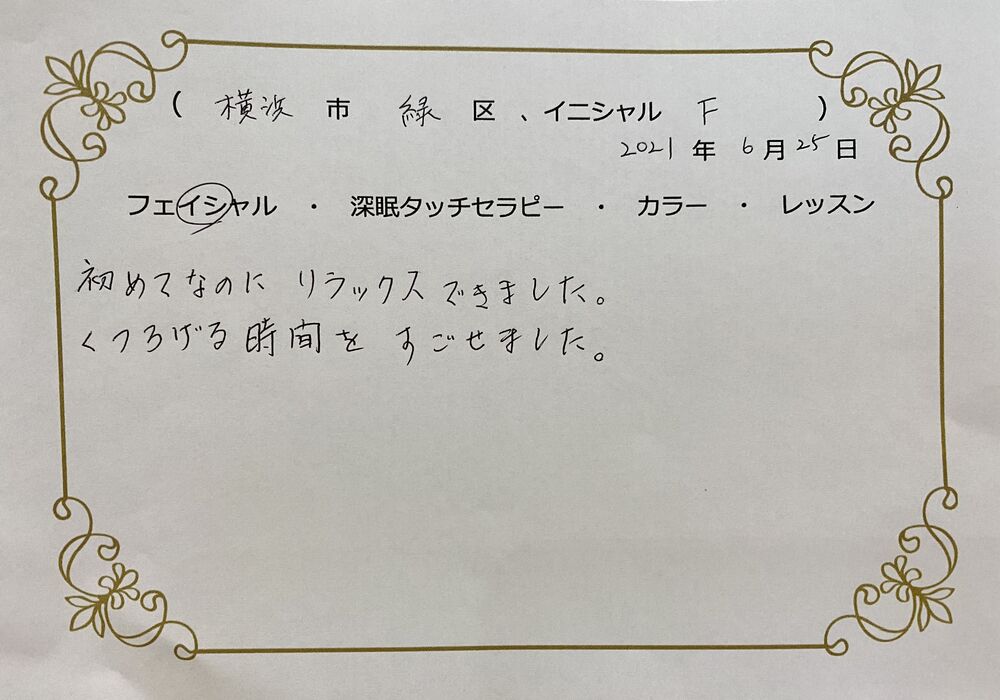 （ 横浜 市 緑 区 、イニシャル F ）
2021 年 6 月 25 日
フェイシャル ・ 深眠タッチセラピー ・ カラー ・ レッスン
初めてなのに リラックスできました。
くつろげる時間を すごせました。